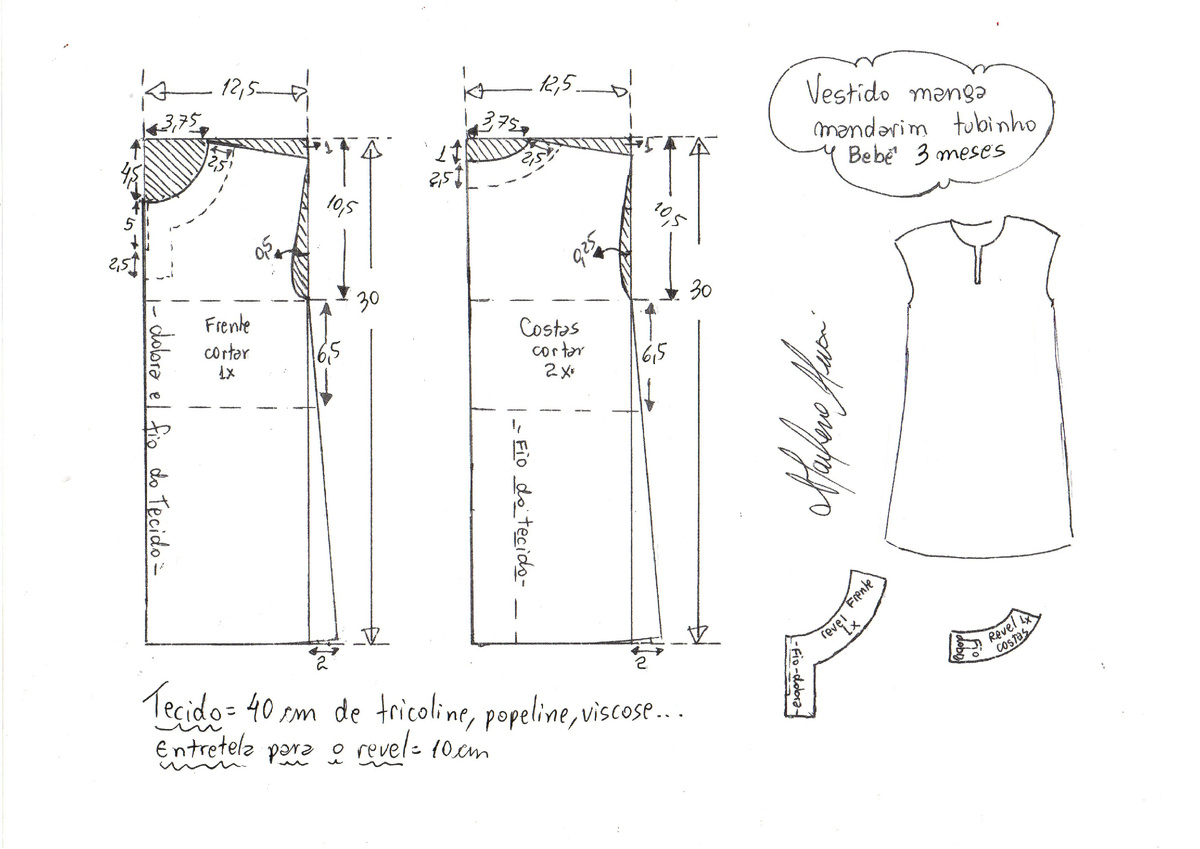 12,5
3,75
4,5
2,5
1
5
2,5
10,5
30
6,5
Frente
cortar
1x
- dobra e fio do Tecido -
2
12,5
3,75
1
2,5
2,5
1
10,5
0,25
30
6,5
Costas
cortar
2x
- Fio do tecido -
2
Vestido manga
mandarim tubinho
Bebê 3 meses
revel Frente
1x
- Fio - dobra -
Revel 1x
costas
Fio
dobra
Tecido = 40 cm de tricoline, popeline, viscose...
Entretela para o revel = 10 cm